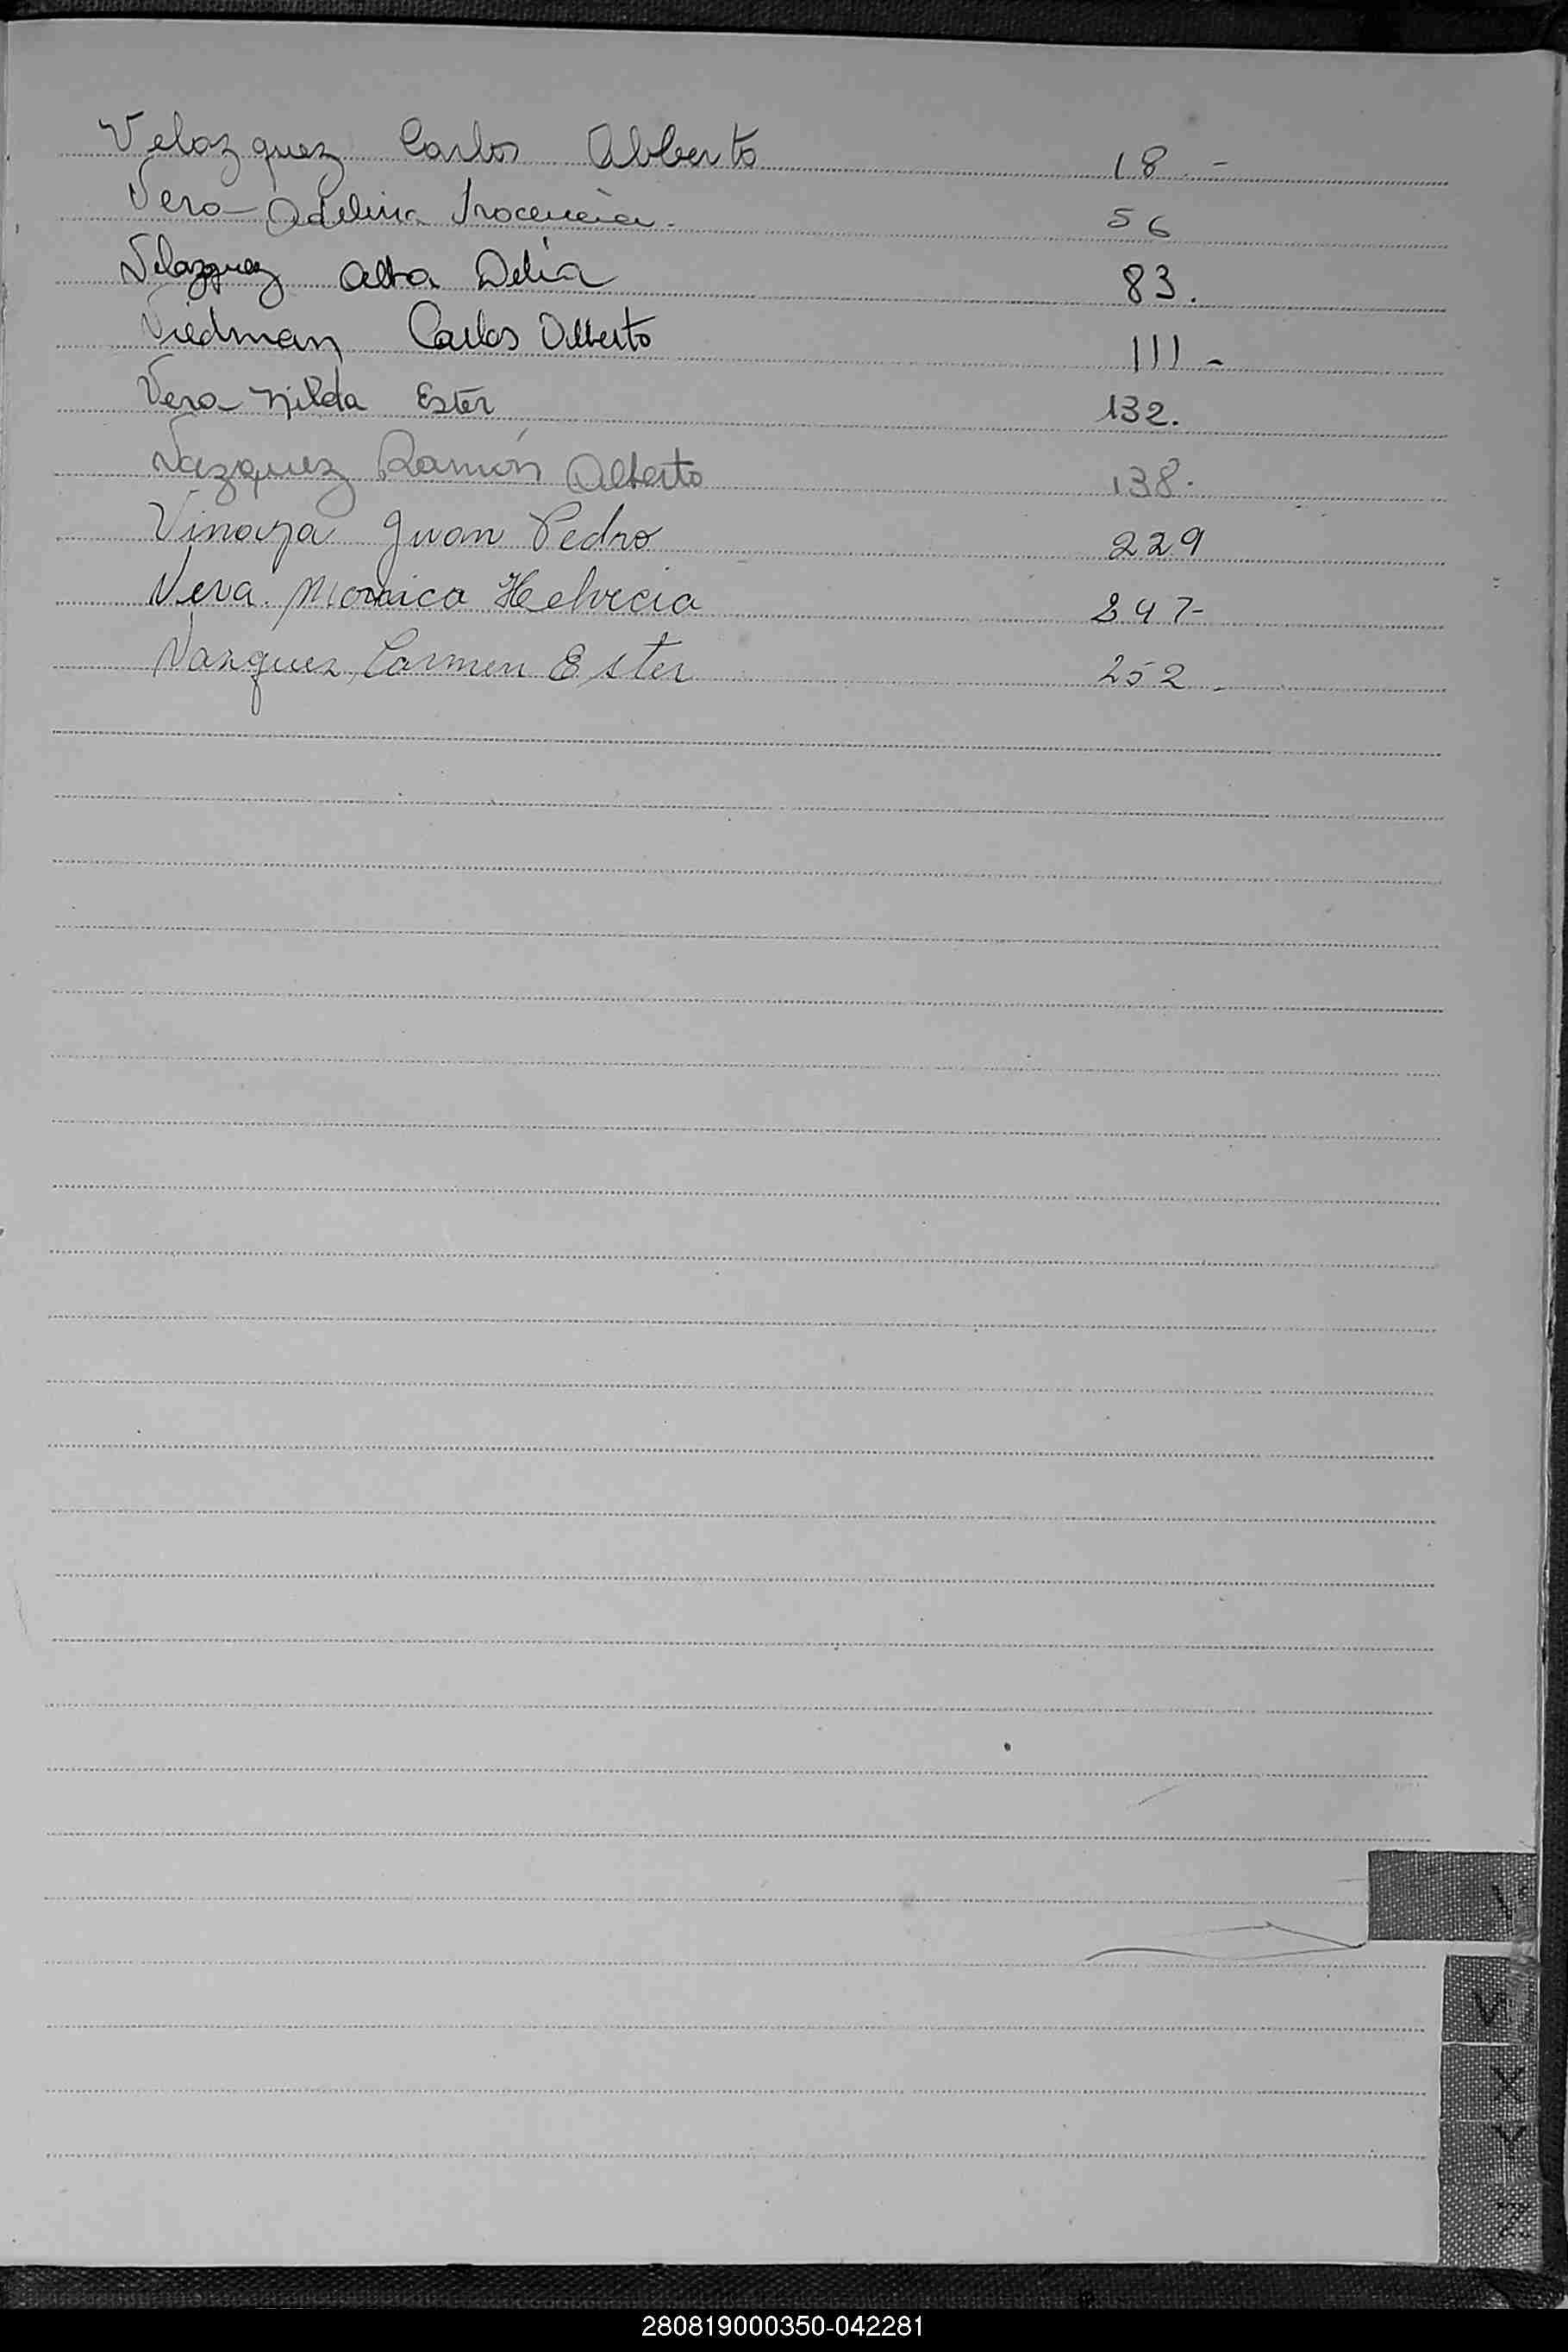 Velazquez Carlos Alberto 18.-
Vera Adelina Inocencia. 56
Velazquez Alba Delia 83.
Viedman Carlos Alberto 111-
Vera Nilda Ester 132.
Vazquez Ramón Alberto 138.
Vinaya Juan Pedro 229
Vera. Monica Helvecia 247-
Vazquez, Carmen Ester 252.
V
X
Y
Z
280819000350-042281